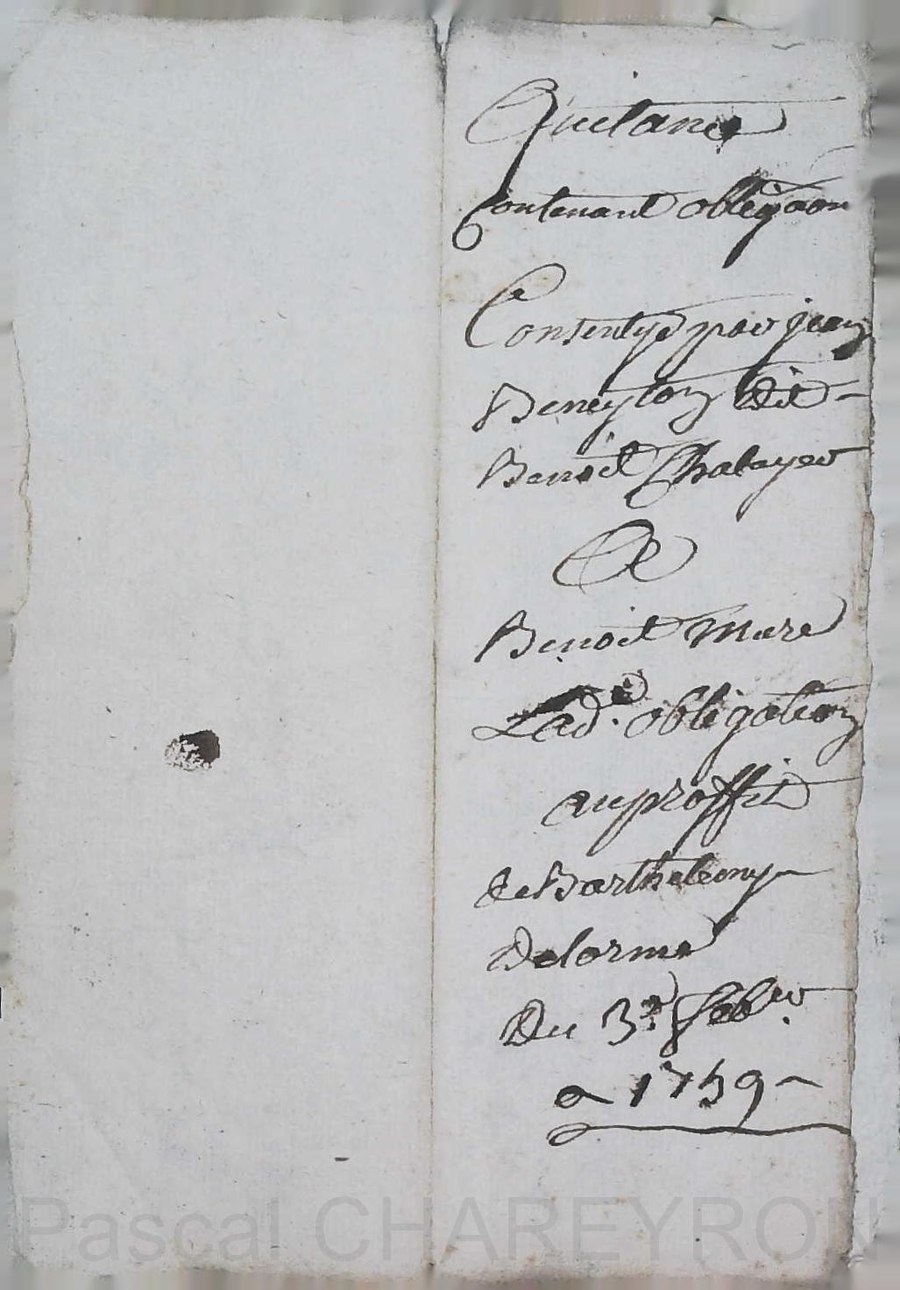 Quitance
contenant obligaon
Consentye par jean
Beneyton dit
Benoit Chalayer
&
Benoit mare
Lad.e obligation
au proffit
de Barthelemy
Delorme
Du 3.e feb.er
1759
Pascal CHAREYRON